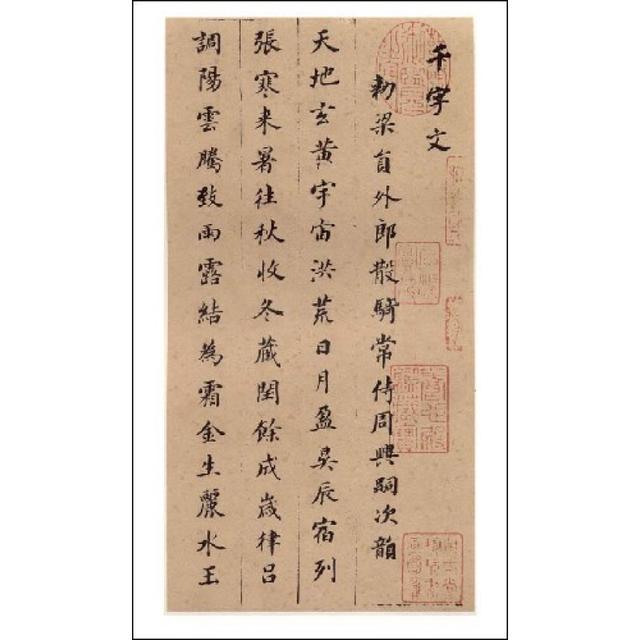 千字文
勑梁貟外郎散騎常侍周興嗣次韻
天地玄黃宇宙洪荒日月盈昃辰宿列
張寒来暑往秋收冬藏閏餘成歲律呂
調陽雲騰致雨露結為霜金生麗水玉